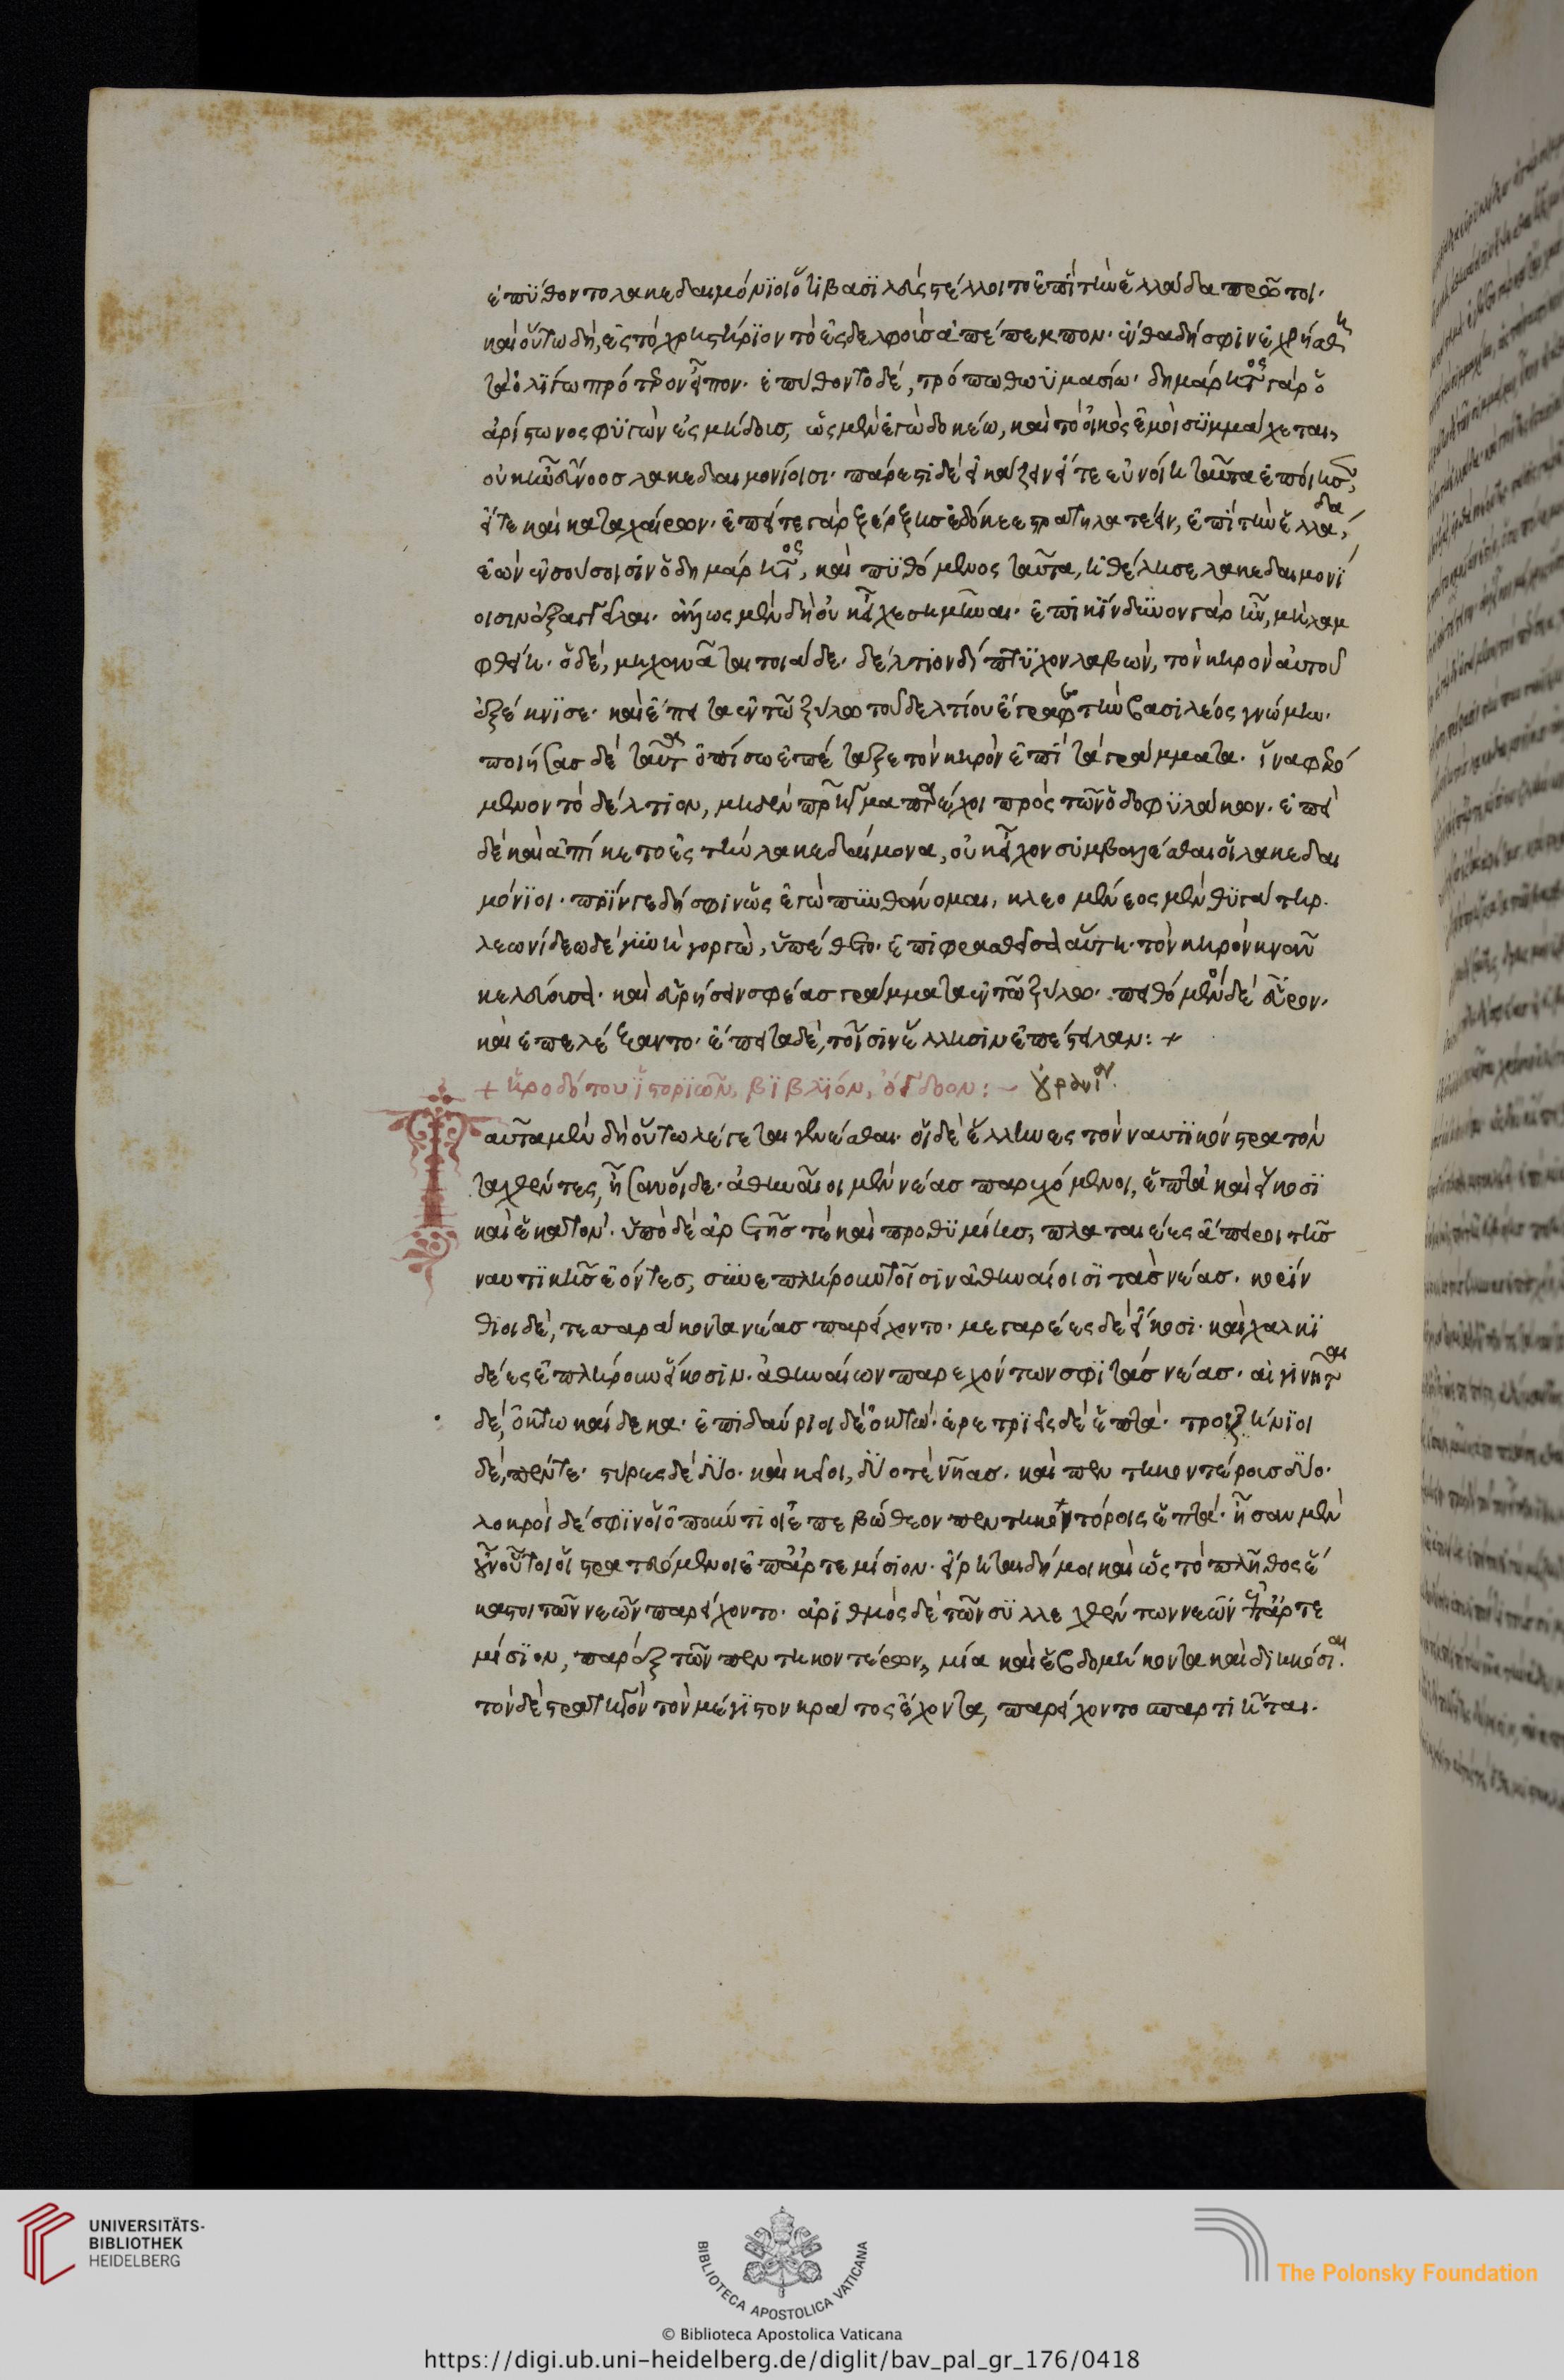 ἐπύθοντο λακεδαιμόνιοι ὅτι βασιλεὺς στέλλοιτο ἐπὶ τὴν ἑλλάδα πρῶτοι·
καὶ οὕτω δὴ, ἐς τὸ χρηστήριον τὸ ἐς δελφοὺς ἀπέπεμπον· ἔνθα δή σφιν ἐχρήσθη
τὰ ὀλίγω πρότερον εἶπον· ἐπύθοντο δέ, τρόπω θωυμασίω· δημάρητος γὰρ ὁ
ἀρίστωνος φυγὼν ἐς μήδους, ὡς μὲν ἐγὼ δοκέω, καὶ τὸ οἰκὸς ἐμοὶ συμμάχεται,
οὐκ ἦν εὔνοος λακεδαιμονίοισι· πάρεστι δὲ εἰκάζειν εἴτε εὐνοίη ταῦτα ἐποίησε,
εἴτε καὶ καταχαίρων· ἐπείτε γὰρ ξέρξης ἐδόκεε στρατηλατέειν, ἐπὶ τὴν ἑλλάδα,
ἐὼν ἐν σούσοισιν ὁ δημάρητος, καὶ πυθόμενος ταῦτα, ἠθέλησε λακεδαιμονί
οισιν ἐξαγγεῖλαι· ἄλλως μὲν δὴ οὐκ εἶχε σημῆναι· ἐπικίνδυνον γὰρ ἦν, μὴ λαμ
φθείη· ὁ δέ, μηχανᾶται τοιάδε· δελτίον δίπτυχον λαβὼν, τὸν κηρὸν αὐτοῦ
ἐξέκνισε· καὶ ἔπειτα ἐν τῶ ξύλω τοῦ δελτίου ἔγραψε τὴν βασιλέος γνώμην·
ποιήσας δὲ ταῦτα ὀπίσω ἐπέταξε τὸν κηρὸν ἐπὶ τὰ γράμματα· ἵνα φερό
μενον τὸ δέλτιον, μηδὲν πρῆγμα παρέχοι πρὸς τῶν ὁδοφυλάκων· ἐπεὶ
δὲ καὶ ἀπίκετο ἐς τὴν λακεδαίμονα, οὐκ εἶχον συμβαλέσθαι οἱ λακεδαι
μόνιοι· πρίν γε δή σφιν ὡς ἐγὼ πυνθάνομαι, κλεομένεος μὲν θυγάτηρ·
λεωνίδεω δὲ γυνὴ γοργὼ, ὑπέθετο· ἐπιφρασθεῖσα αὕτη· τὸν κηρὸν κνᾶν
κελεύουσα· καὶ εὑρήσειν σφέας γράμματα ἐν τῶ ξύλω· πειθόμενοι δὲ εὗρον·
καὶ ἐπελέξαντο· ἔπειτα δὲ, τοῖσιν ἕλλησιν ἐπέστειλαν: +
+ ἡροδότου ἱστοριῶν, βιβλίον, ὄγδοον: ~ οὐρανία.
Ταῦτα μὲν δὴ οὕτω λέγεται γενέσθαι· οἱ δὲ ἕλληνες τὸν ναυτικὸν στρατὸν
ταχθέντες, ἦσαν οἵδε· ἀθηναῖοι μὲν νέας παρεχόμενοι, ἑπτὰ καὶ εἴκοσι
καὶ ἑκατὸν· ὑπὸ δὲ ἀρετῆς τὲ καὶ προθυμίης, πλαταιέες ἄπειροι τῆς
ναυτικῆς ἐόντες, συνεπλήρουν τοῖσιν ἀθηναίοισι τὰς νέας· κορίν
θιοι δὲ, τεσσαράκοντα νέας παρείχοντο· μεγαρέες δὲ εἴκοσι· καὶ χαλκι
δέες ἐπλήρουν εἴκοσιν· ἀθηναίων παρεχόντων σφι τὰς νέας· αἰγινῆται
δὲ, ὀκτωκαίδεκα· ἐπιδαύριοι δὲ ὀκτώ· ἐρετριεῖς δὲ ἑπτά· τροιζήνιοι
δέ, πέντε· στυρες δὲ δύο· καὶ κεῖοι, δύο τὲ νῆας· καὶ πεντηκοντέρους δύο·
λοκροὶ δέ σφιν οἱ ὀπούντιοι ἐπεβώθεον πεντηκοντόρους ἑπτά· ἦσαν μὲν
ὦν οὗτοι οἱ στρατευόμενοι ἐπ' ἀρτεμίσιον· εἴρηται δή μοι καὶ ὡς τὸ πλῆθος ἕ
καστοι τῶν νεῶν παρείχοντο· ἀριθμὸς δὲ τῶν συλλεχθέντων νεῶν ἐπ' ἀρτε
μίσιον, παρὲξ τῶν πεντηκοντέρων, μία καὶ ἑβδομήκοντα καὶ διηκόσιαι.
τὸν δὲ στρατηγὸν τὸν μέγιστον κράτος ἔχοντα, παρείχοντο σπαρτιῆται·
UNIVERSITÄTS-
BIBLIOTHEK
HEIDELBERG
BIBLIOTECA APOSTOLICA VATICANA
The Polonsky Foundation
© Biblioteca Apostolica Vaticana
https://digi.ub.uni-heidelberg.de/diglit/bav_pal_gr_176/0418